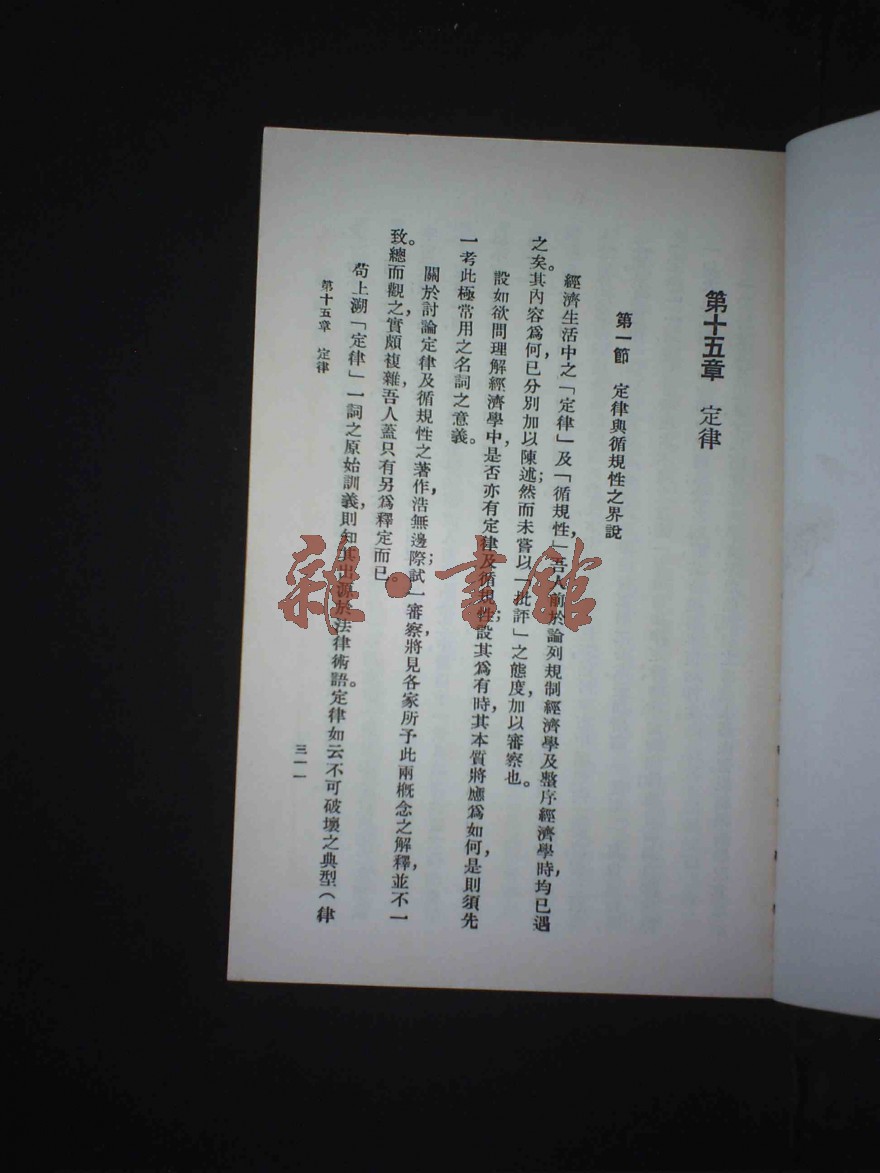 第十五章 定律
第一節 定律與循規性之界說
經濟生活中之「定律」及「循規性」，吾人前於論列規制經濟學及整序經濟學時，均已遇
之矣。其內容爲何，已分別加以陳述；然而未嘗以「批評」之態度，加以審察也。
設如欲問理解經濟學中，是否亦有定律及循規性；設其爲有時，其本質將應爲如何，是則須先
一考此極常用之名詞之意義。
關於討論定律及循規性之著作，浩無邊際；試一審察，將見各家所予此兩概念之解釋，並不一
致。總而觀之，實頗複雜，吾人蓋只有另爲釋定而已。
苟上溯「定律」一詞之原始訓義，則知其出源於法律術語。定律如云不可破壞之典型（律
第十五章 定律
三一一
雜·書館